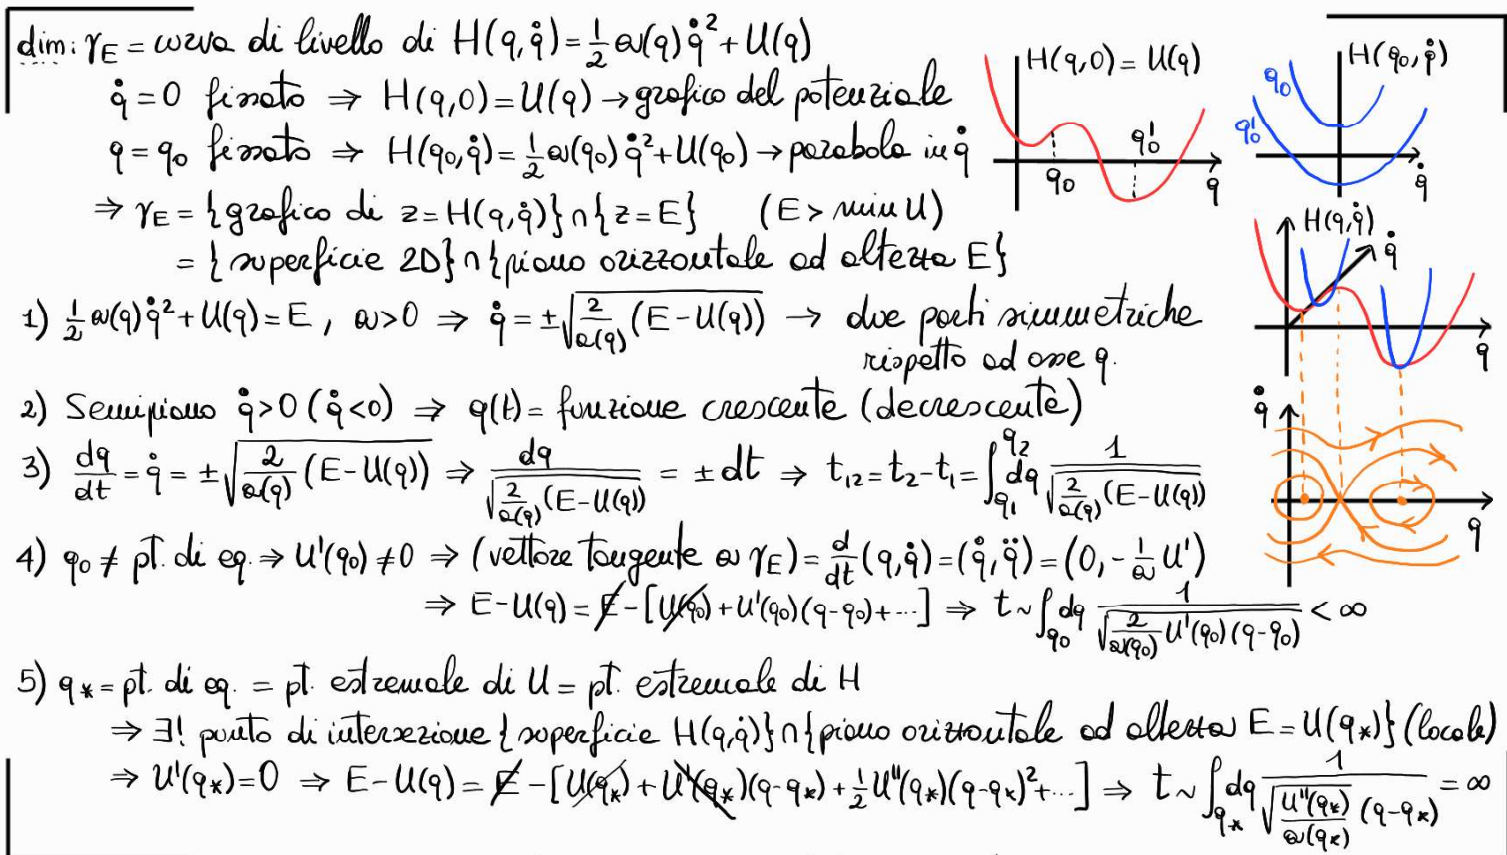 dim: γ_E = curva di livello di H(q,q̇) = 1/2 a(q) q̇² + U(q)
q̇ = 0 fissato ⇒ H(q,0) = U(q) → grafico del potenziale
q = q₀ fissato ⇒ H(q₀,q̇) = 1/2 a(q₀) q̇² + U(q₀) → parabola in q̇
⇒ γ_E = {grafico di z = H(q,q̇)} ∩ {z = E} (E > min U)
= {superficie 2D} ∩ {piano orizzontale ad altezza E}
1) 1/2 a(q) q̇² + U(q) = E, a > 0 ⇒ q̇ = ±√(2/a(q) (E - U(q))) → due parti simmetriche
rispetto ad asse q.
2) Semipiano q̇ > 0 (q̇ < 0) ⇒ q(t) = funzione crescente (decrescente)
3) dq/dt = q̇ = ±√(2/a(q) (E - U(q))) ⇒ dq/√(2/a(q) (E - U(q))) = ± dt ⇒ t₁₂ = t₂ - t₁ = ∫_{q₁}^{q₂} dq 1/√(2/a(q) (E - U(q)))
4) q₀ ≠ pt. di eq. ⇒ U'(q₀) ≠ 0 ⇒ (vettore tangente a γ_E) = d/dt (q,q̇) = (q̇,q̈) = (0, - 1/a U')
⇒ E - U(q) = E - [U(q₀) + U'(q₀)(q - q₀) + ...] ⇒ t ~ ∫_{q₀} dq 1/√(2/a(q₀) U'(q₀)(q - q₀)) < ∞
5) q* = pt. di eq. = pt. estremale di U = pt. estremale di H
⇒ ∃! punto di intersezione {superficie H(q,q̇)} ∩ {piano orizzontale ad altezza E = U(q*)} (locale)
⇒ U'(q*) = 0 ⇒ E - U(q) = E - [U(q*) + U'(q*)(q - q*) + 1/2 U''(q*)(q - q*)² + ...] ⇒ t ~ ∫_{q*} dq 1/(√(U''(q*)/a(q*)) (q - q*)) = ∞
H(q,0) = U(q)
q₀
q₀'
q
H(q₀,ṗ)
q₀
q₀'
q̇
H(q,q̇)
q̇
q
q̇
q